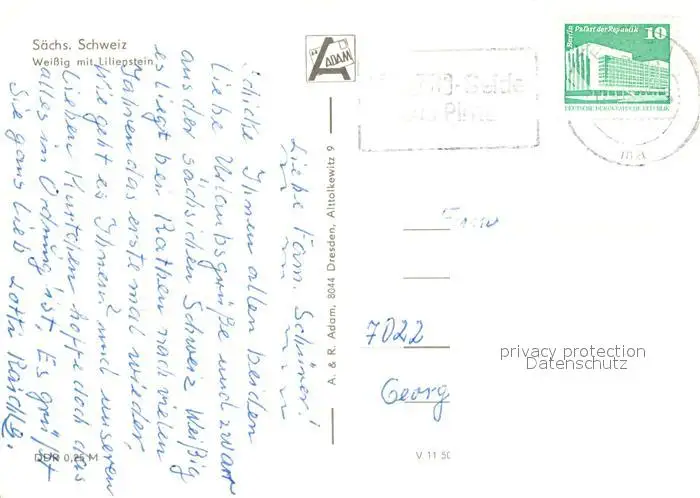 Sächs. Schweiz
Weißig mit Liliepstein
ADAM
Liebe Fam.
schicke Ihnen allen beiden
liebe Urlaubsgrüße und zwar
aus der sächsischen Schweiz Weißig
es liegt bei Rathen nach vielen
Jahren das erste mal wieder,
wie geht es Ihnen? und unseren
lieben Kurtchen hoffe doch das
alles in Ordnung ist, Es grüßt
Sie ganz lieb Lotti
DDR 0,25 M
A. & R. Adam, 8044 Dresden, Alttolkewitz 9
V 11 50
Berlin Palast der Republik
10
DEUTSCHE DEMOKRATISCHE REPUBLIK
Frau
7022
Georg
privacy protection
Datenschutz